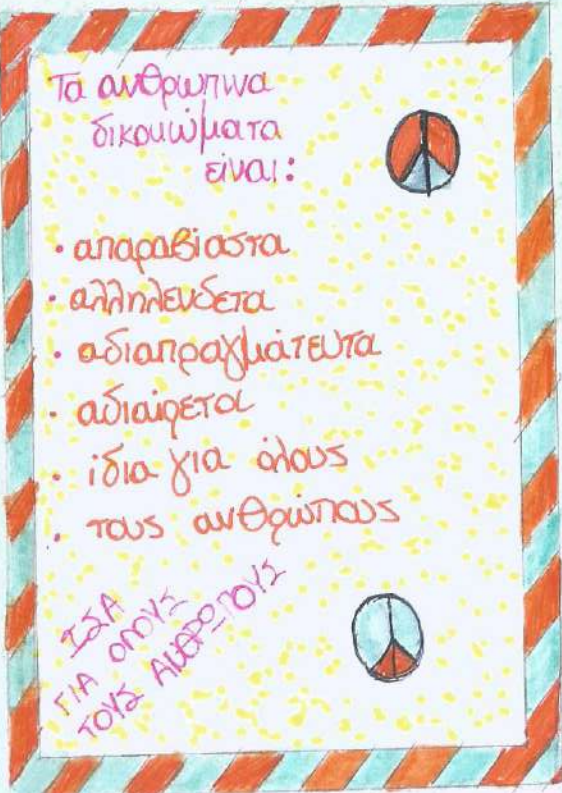 Τα ανθρωπινα
δικαιώματα
είναι:
• απαραβίαστα
• αλληλενδετα
• αδιαπραγμάτευτα
• αδιαίρετα
• ίδια για όλους
• τους ανθρώπους
ΙΣΑ
ΓΙΑ ΟΛΟΥΣ
ΤΟΥΣ ΑΝΘΡΩΠΟΥΣ